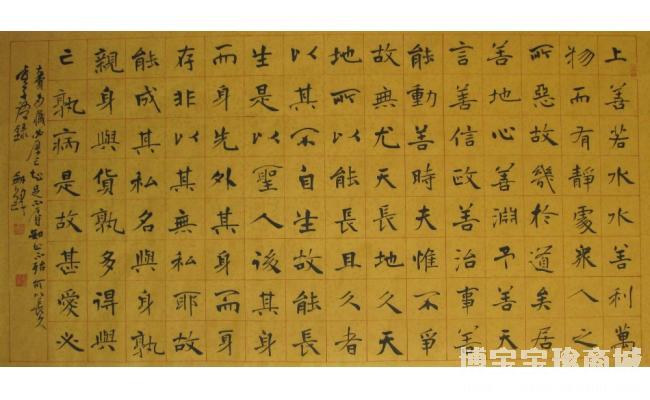 上善若水水善利萬
物而有靜處衆人之
所惡故幾於道矣居
善地心善淵予善天
言善信政善治事善
能動善時夫惟不爭
故無尤天長地久天
地所以能長且久者
以其不自生故能長
生是以聖人後其身
而身先外其身而身
存非以其無私耶故
能成其私名與身孰
親身與貨孰多得與
亡孰病是故甚愛必
大費多藏必厚亡知足不辱知止不殆可以長久
博宝宝珍商城